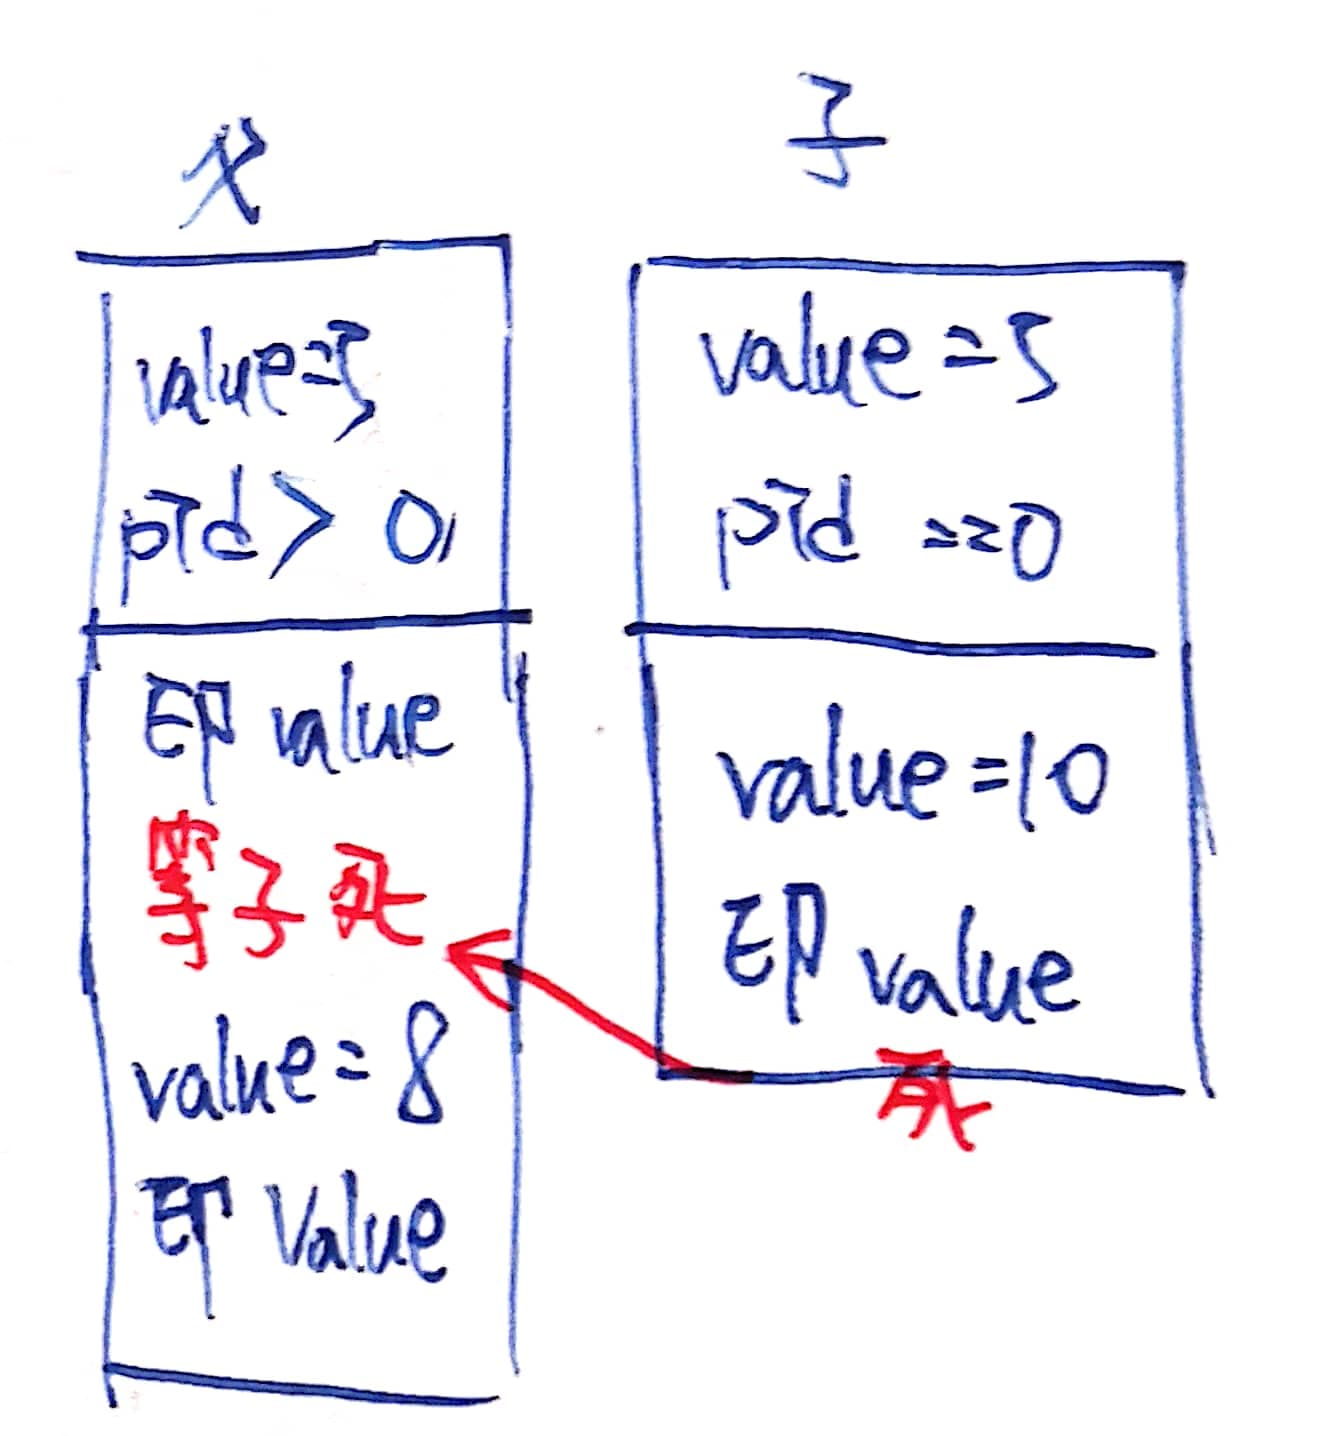 父
value=5
pid > 0
印 value
等子死
value=8
印 Value
子
value=5
pid ==0
value=10
印 value
死